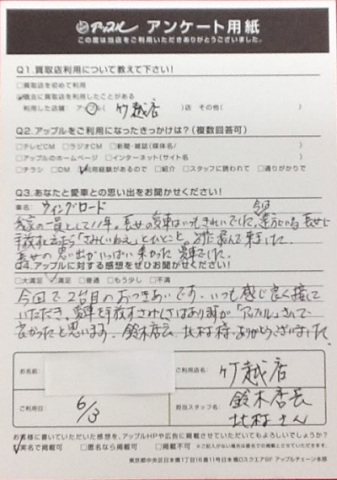 アップル アンケート用紙
この度は当店をご利用いただきありがとうございました。
Q1.買取店利用について教えて下さい!
□買取店を初めて利用
□過去に買取店を利用したことがある
利用した店舗: アップル( 竹越店 )店 その他( )
Q2.アップルをご利用になったきっかけは?(複数回答可)
□テレビCM □ラジオCM □新聞・雑誌(媒体名/ )
□アップルのホームページ □インターネット(サイト名 )
□チラシ □DM □利用経験があるので □紹介 □スタッフに誘われて □通りがかりで
Q3.あなたと愛車との思い出をお聞かせください!
車名: ウィングロード
の一員として11年。長女の愛車
手放す
長女の思い出がいっぱい 愛車でした。
Q4.アップルに対する感想をぜひお聞かせください!
□大満足 □満足 □普通 □もう少し □不満
今回で2台目のおつきあいです。いつも感じ良く接して
いただき。愛車を手放すさみしさはありますが「アップル」さんで
良かったと思います。鈴木店長、北村様、ありがとうございました。
お名前:
ご利用店名: 竹越店
ご利用日: 6/3
担当スタッフ名: 鈴木店長
北村さん
お客様に書いていただいた感想を、アップルHPや広告に掲載させていただいてもよろしいでしょうか?
□実名で掲載可 □匿名なら掲載可 □不可
東京都中央区日本橋1丁目16番11号日本橋Dスクエア5F アップルチェーン本部